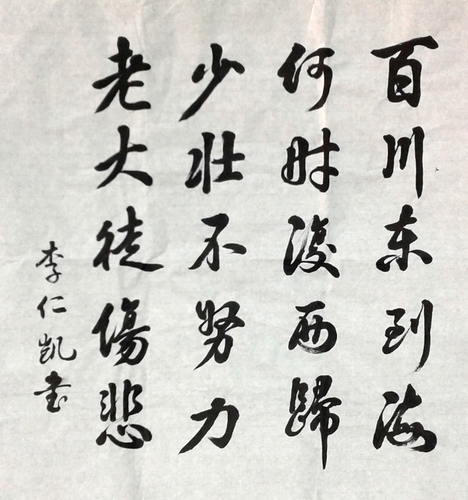 百川东到海
何时復西歸
少壮不努力
老大徒傷悲
李仁凯书